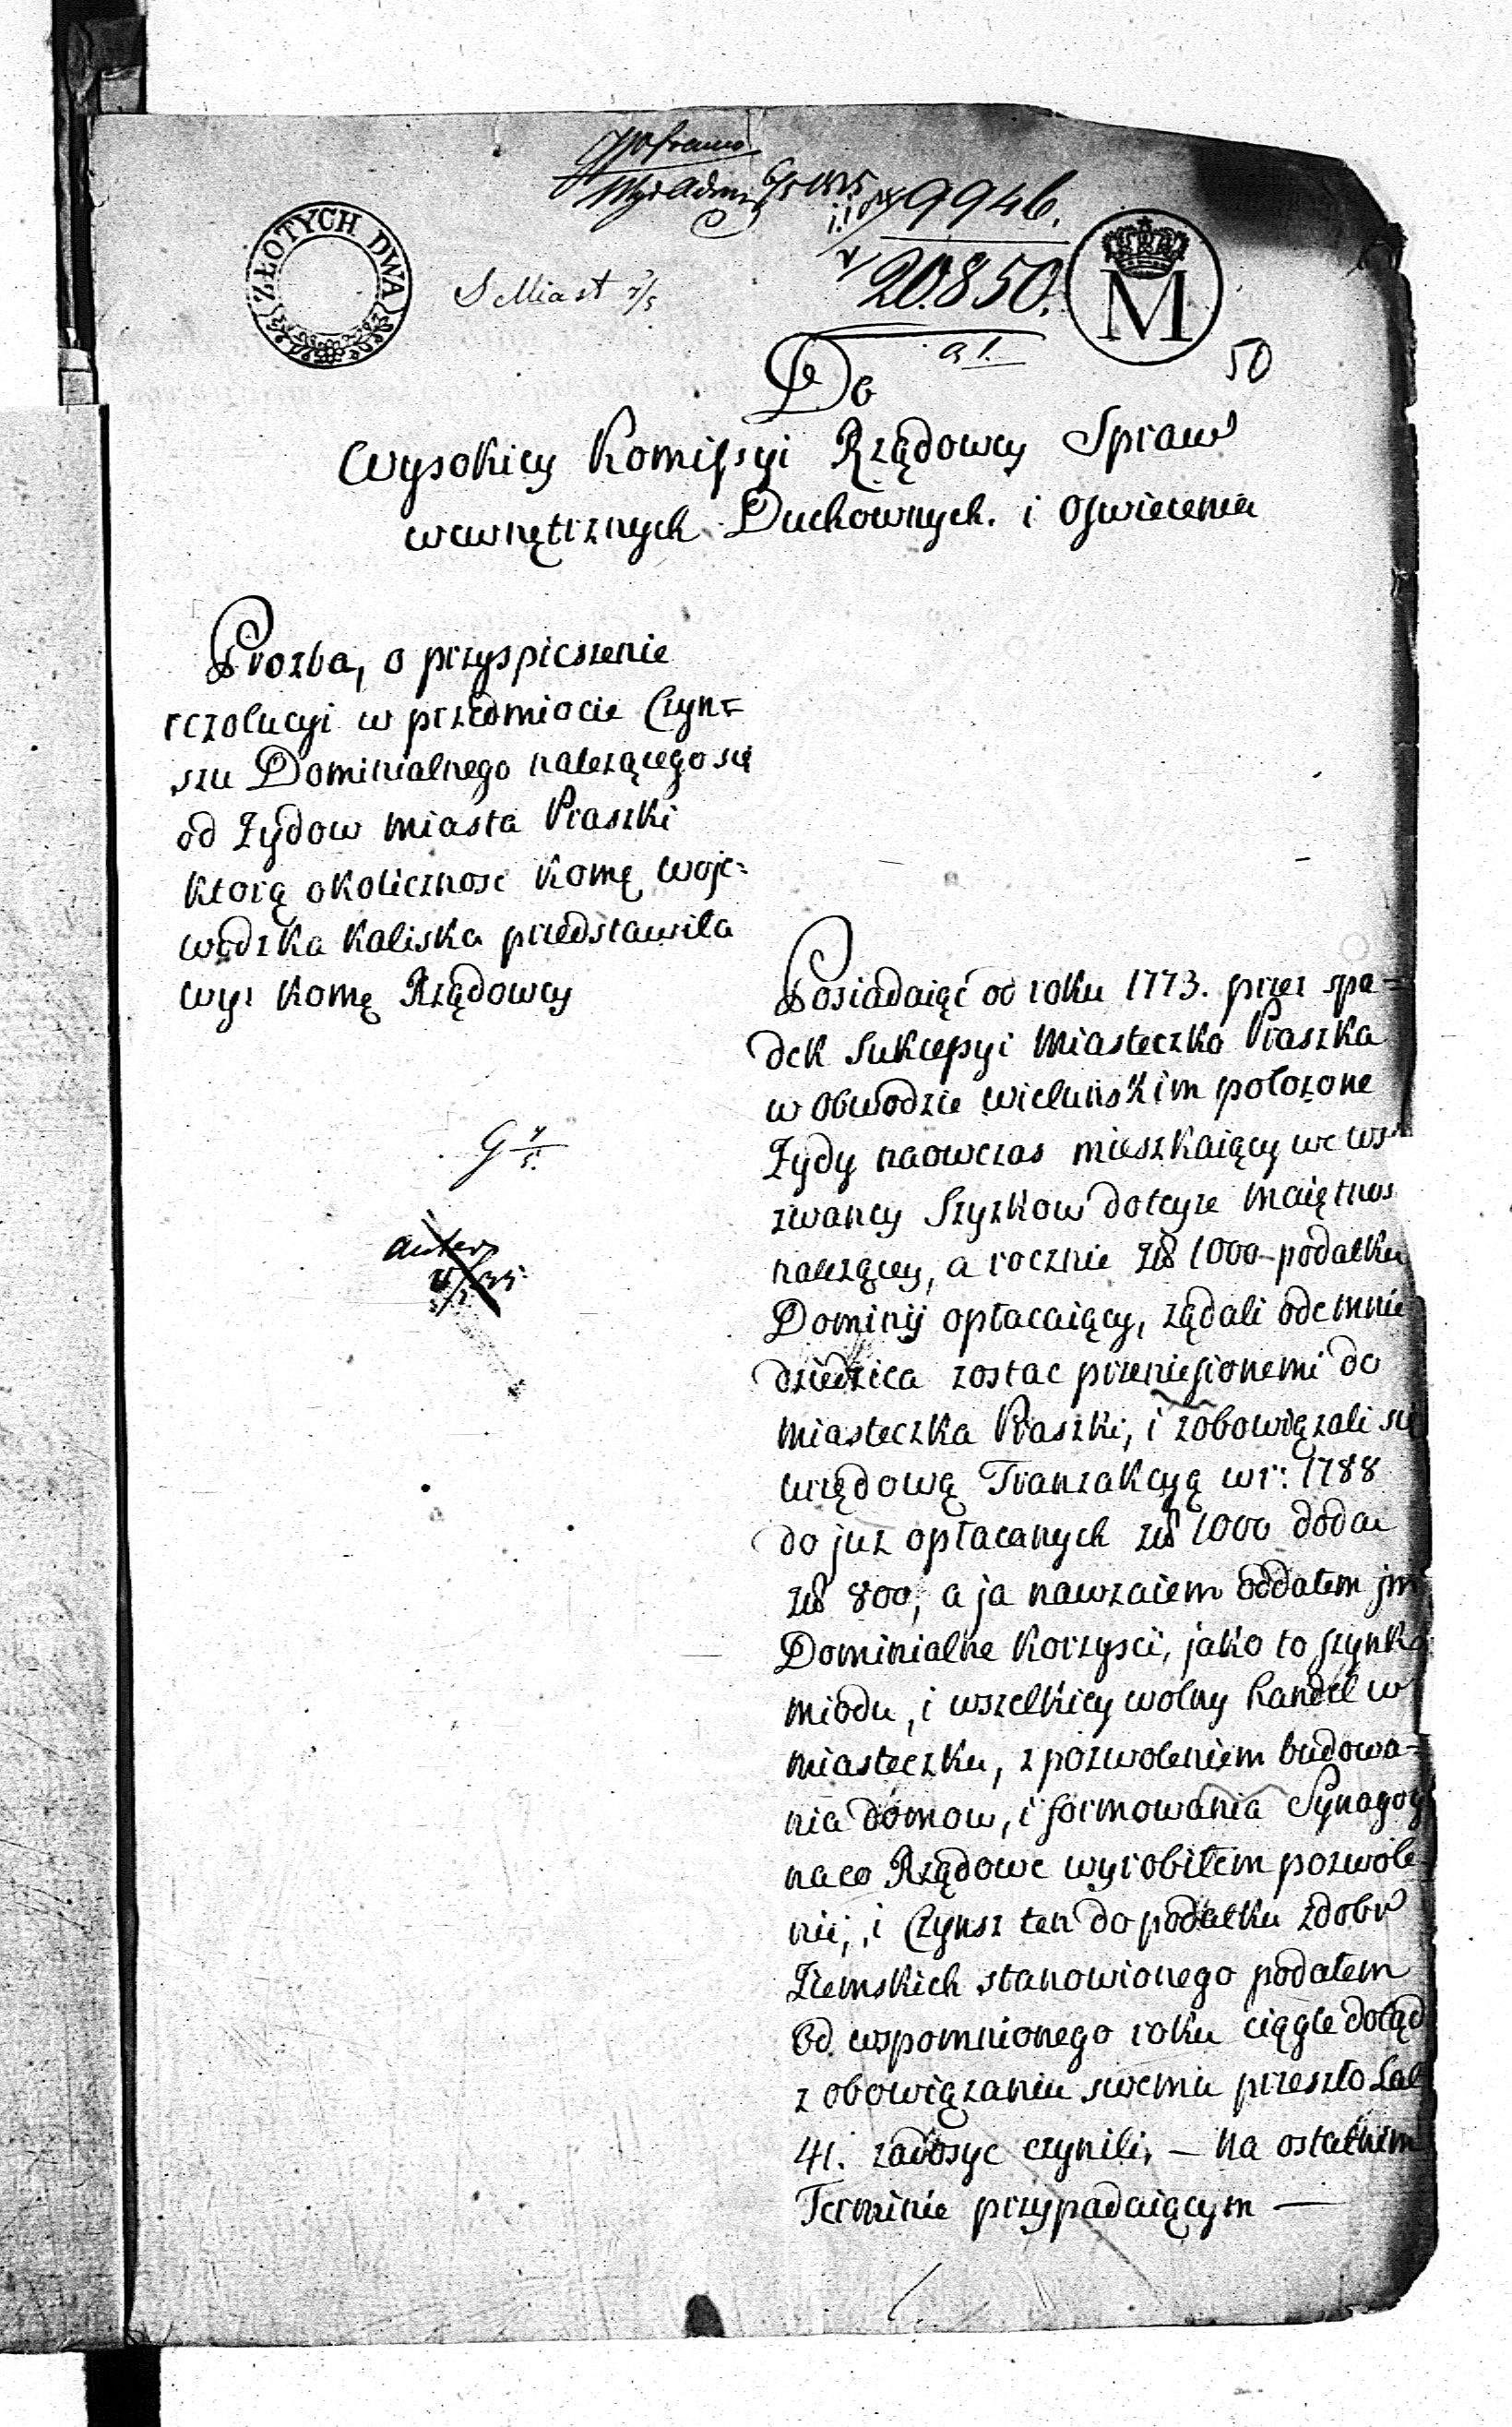 9946.
ZŁOTYCH DWA
20850.
M
S Miast 7/5
a 1.
50
Do
Wysokiey Komißyi Rządowey Spraw
wewnętrznych Duchownych. i Oswiecenia
Prozba, o przyspieszenie
rezolucyi w przedmiocie Czyn=
szu Dominialnego nalezącego się
od Żydow Miasta Praszki
ktorą okolicznosc Komę Woje=
wodzka Kaliska przedstawiła
Wys Komę Rządowey
G 7/5.
Posiadaiąc od roku 1773. przez spa=
dek Sukceßyi Miasteczko Praszka
w Obwodzie Wieluńskim położone
Żydy naowczas mieszkaiący we ws
zwaney Szyszkow dotcyże Maiętnos
nalezącey, a rocznie Zł 1000 podatku
Dominij opłacaiący, ządali odemnie
dziedzica zostac przenießionemi do
Miasteczka Praszki, i zobowiązali się
urzędową Tranzakcyą w r: 1788
do juz opłacanych Zł 1000 dodac
Zł 800, a ja nawzaiem oddałem jm
Dominialne Korzysci, jako to szynk
miodu, i wszelkiey wolny handel w
miasteczku, z pozwoleniem budowa=
nia domow, i formowania Synagogi
na co Rządowe wyrobiłem pozwole
nie, i Czynsz ten do podatku z dobr
Ziemskich stanowionego podałem
Od wspomnionego roku ciągle dotąd
z obowiązaniu swemu przeszło Lat
41. zadosyc czynili, — na ostatnim
Terminie przypadaiącym —